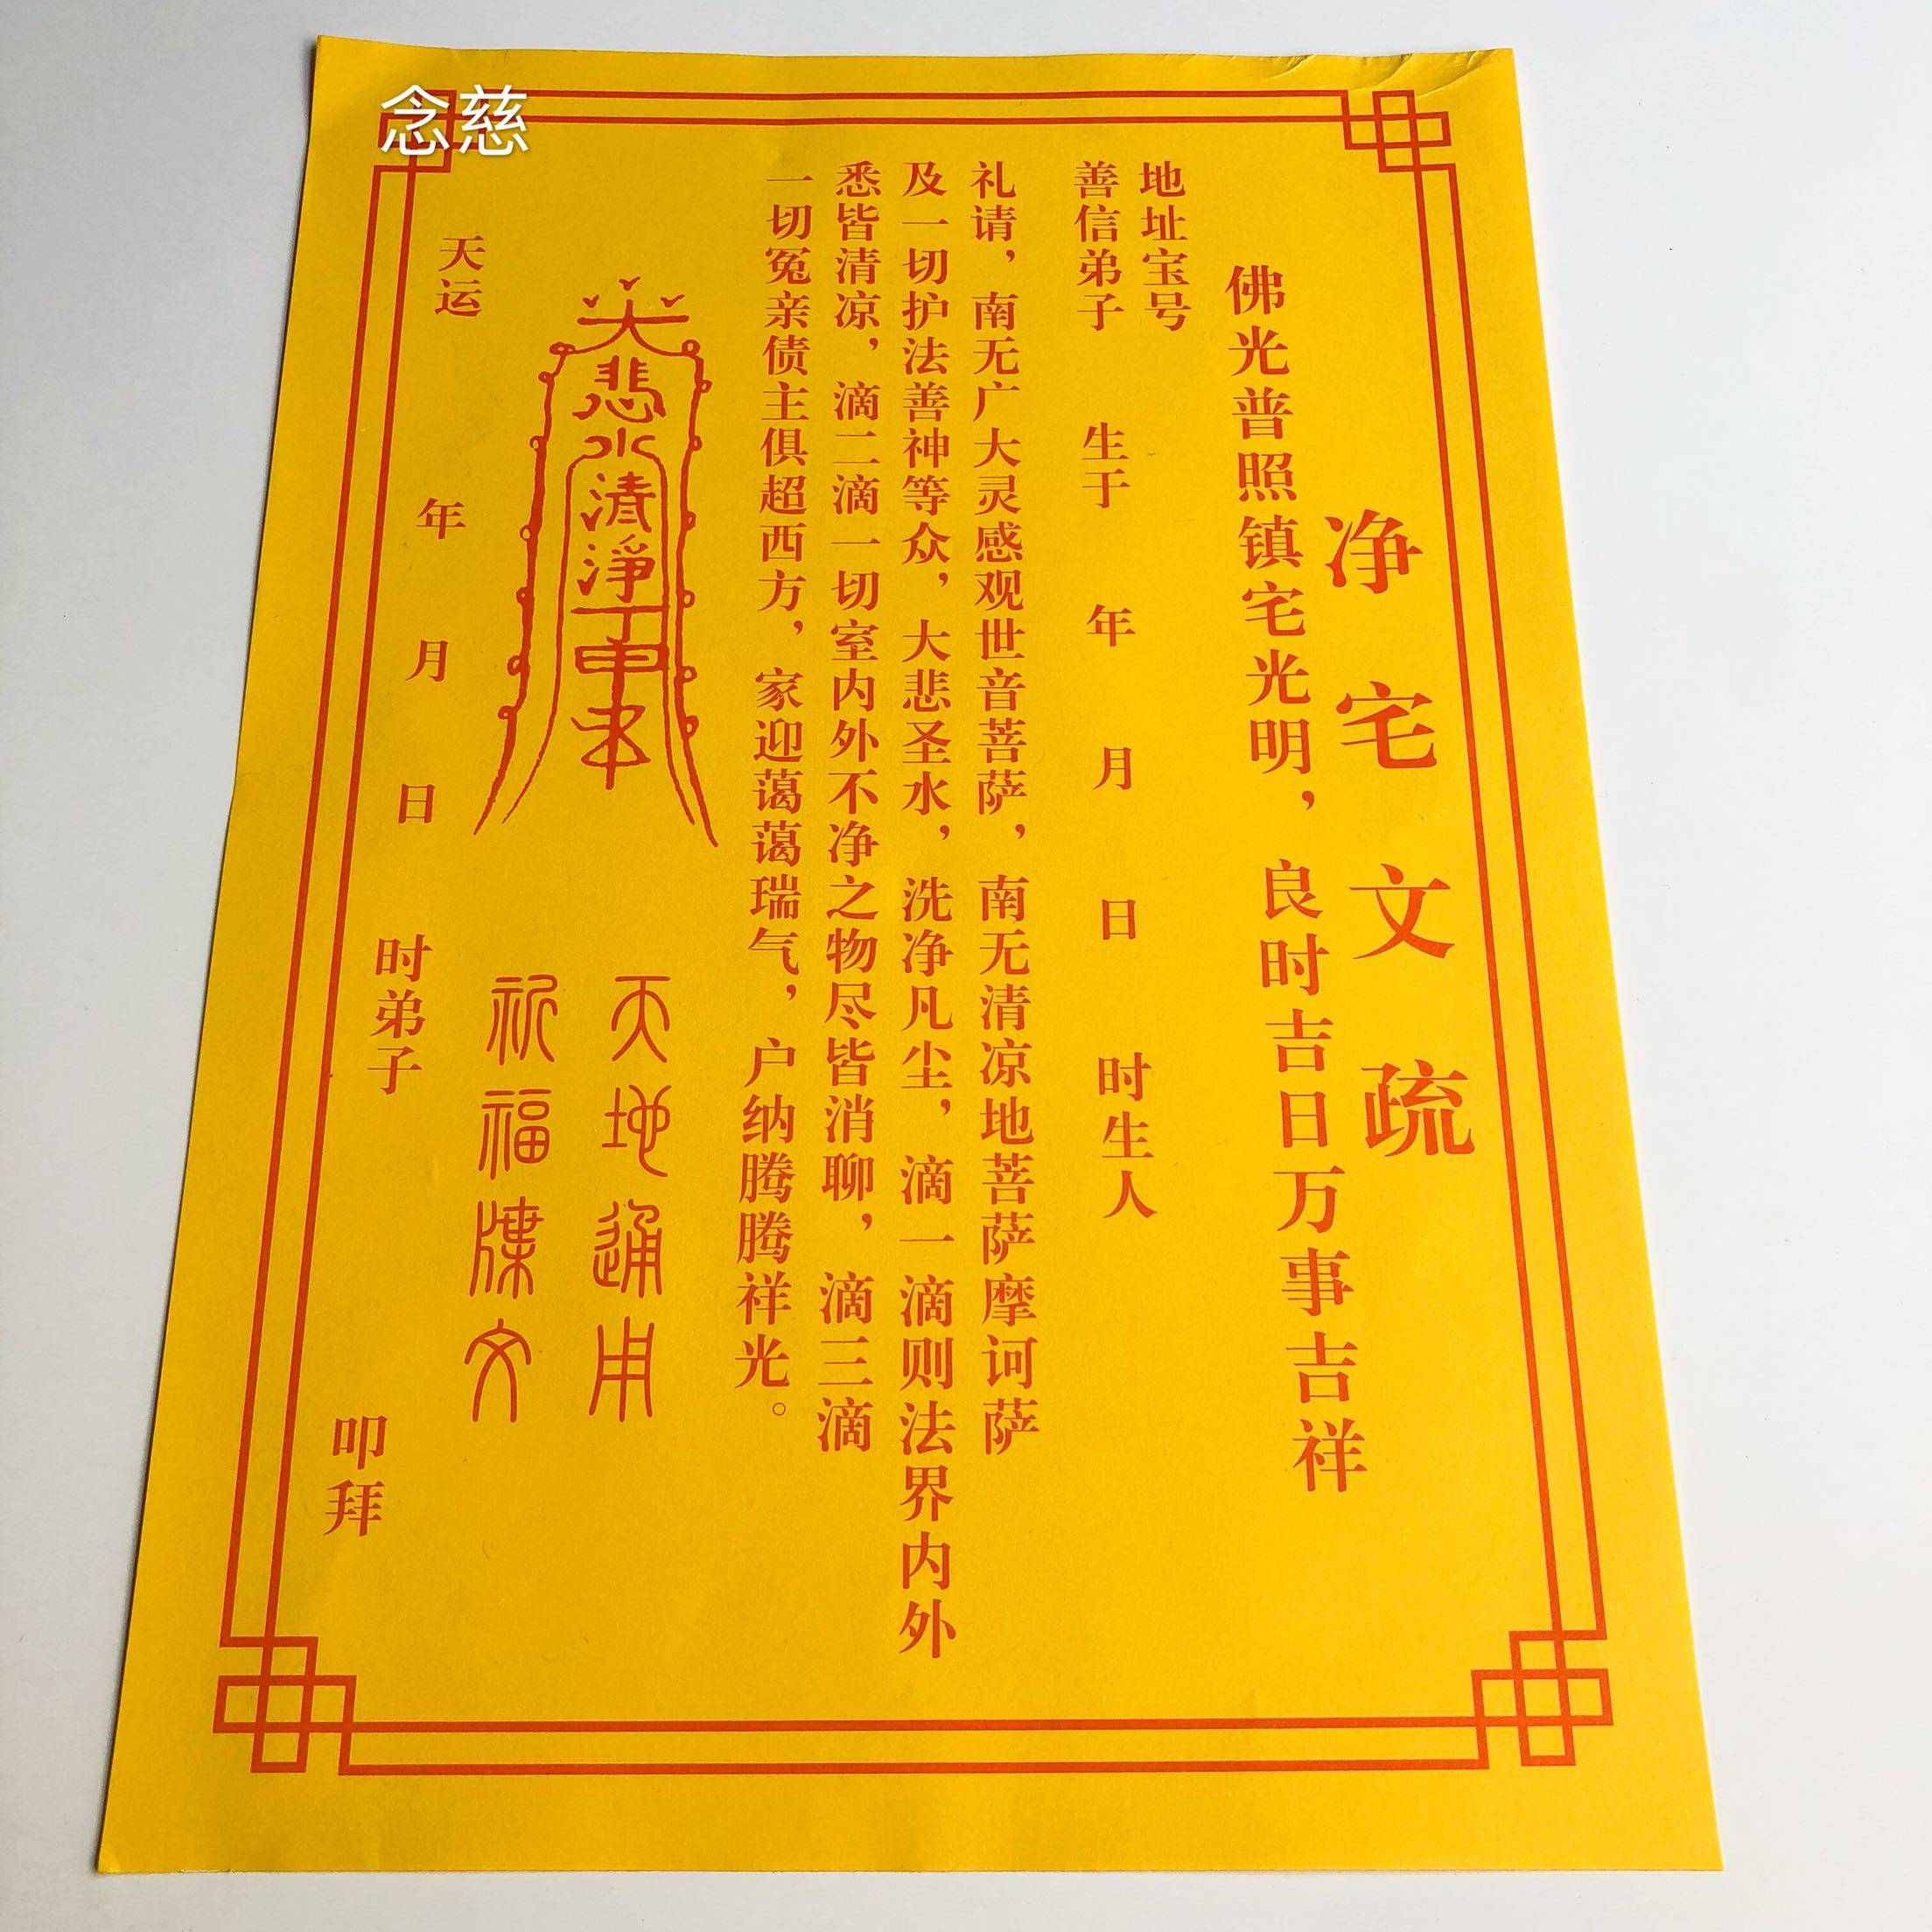 念慈
净宅文疏
佛光普照镇宅光明，良时吉日万事吉祥
地址宝号
善信弟子 生于 年 月 日 时生人
礼请，南无广大灵感观世音菩萨，南无清凉地菩萨摩诃萨
及一切护法善神等众，大悲圣水，洗净凡尘，滴一滴则法界内外
悉皆清凉，滴二滴一切室内外不净之物尽皆消聊，滴三滴
一切冤亲债主俱超西方，家迎蔼蔼瑞气，户纳腾腾祥光。
大悲水清淨
天地通用
祈福牒文
天运 年 月 日 时弟子 叩拜